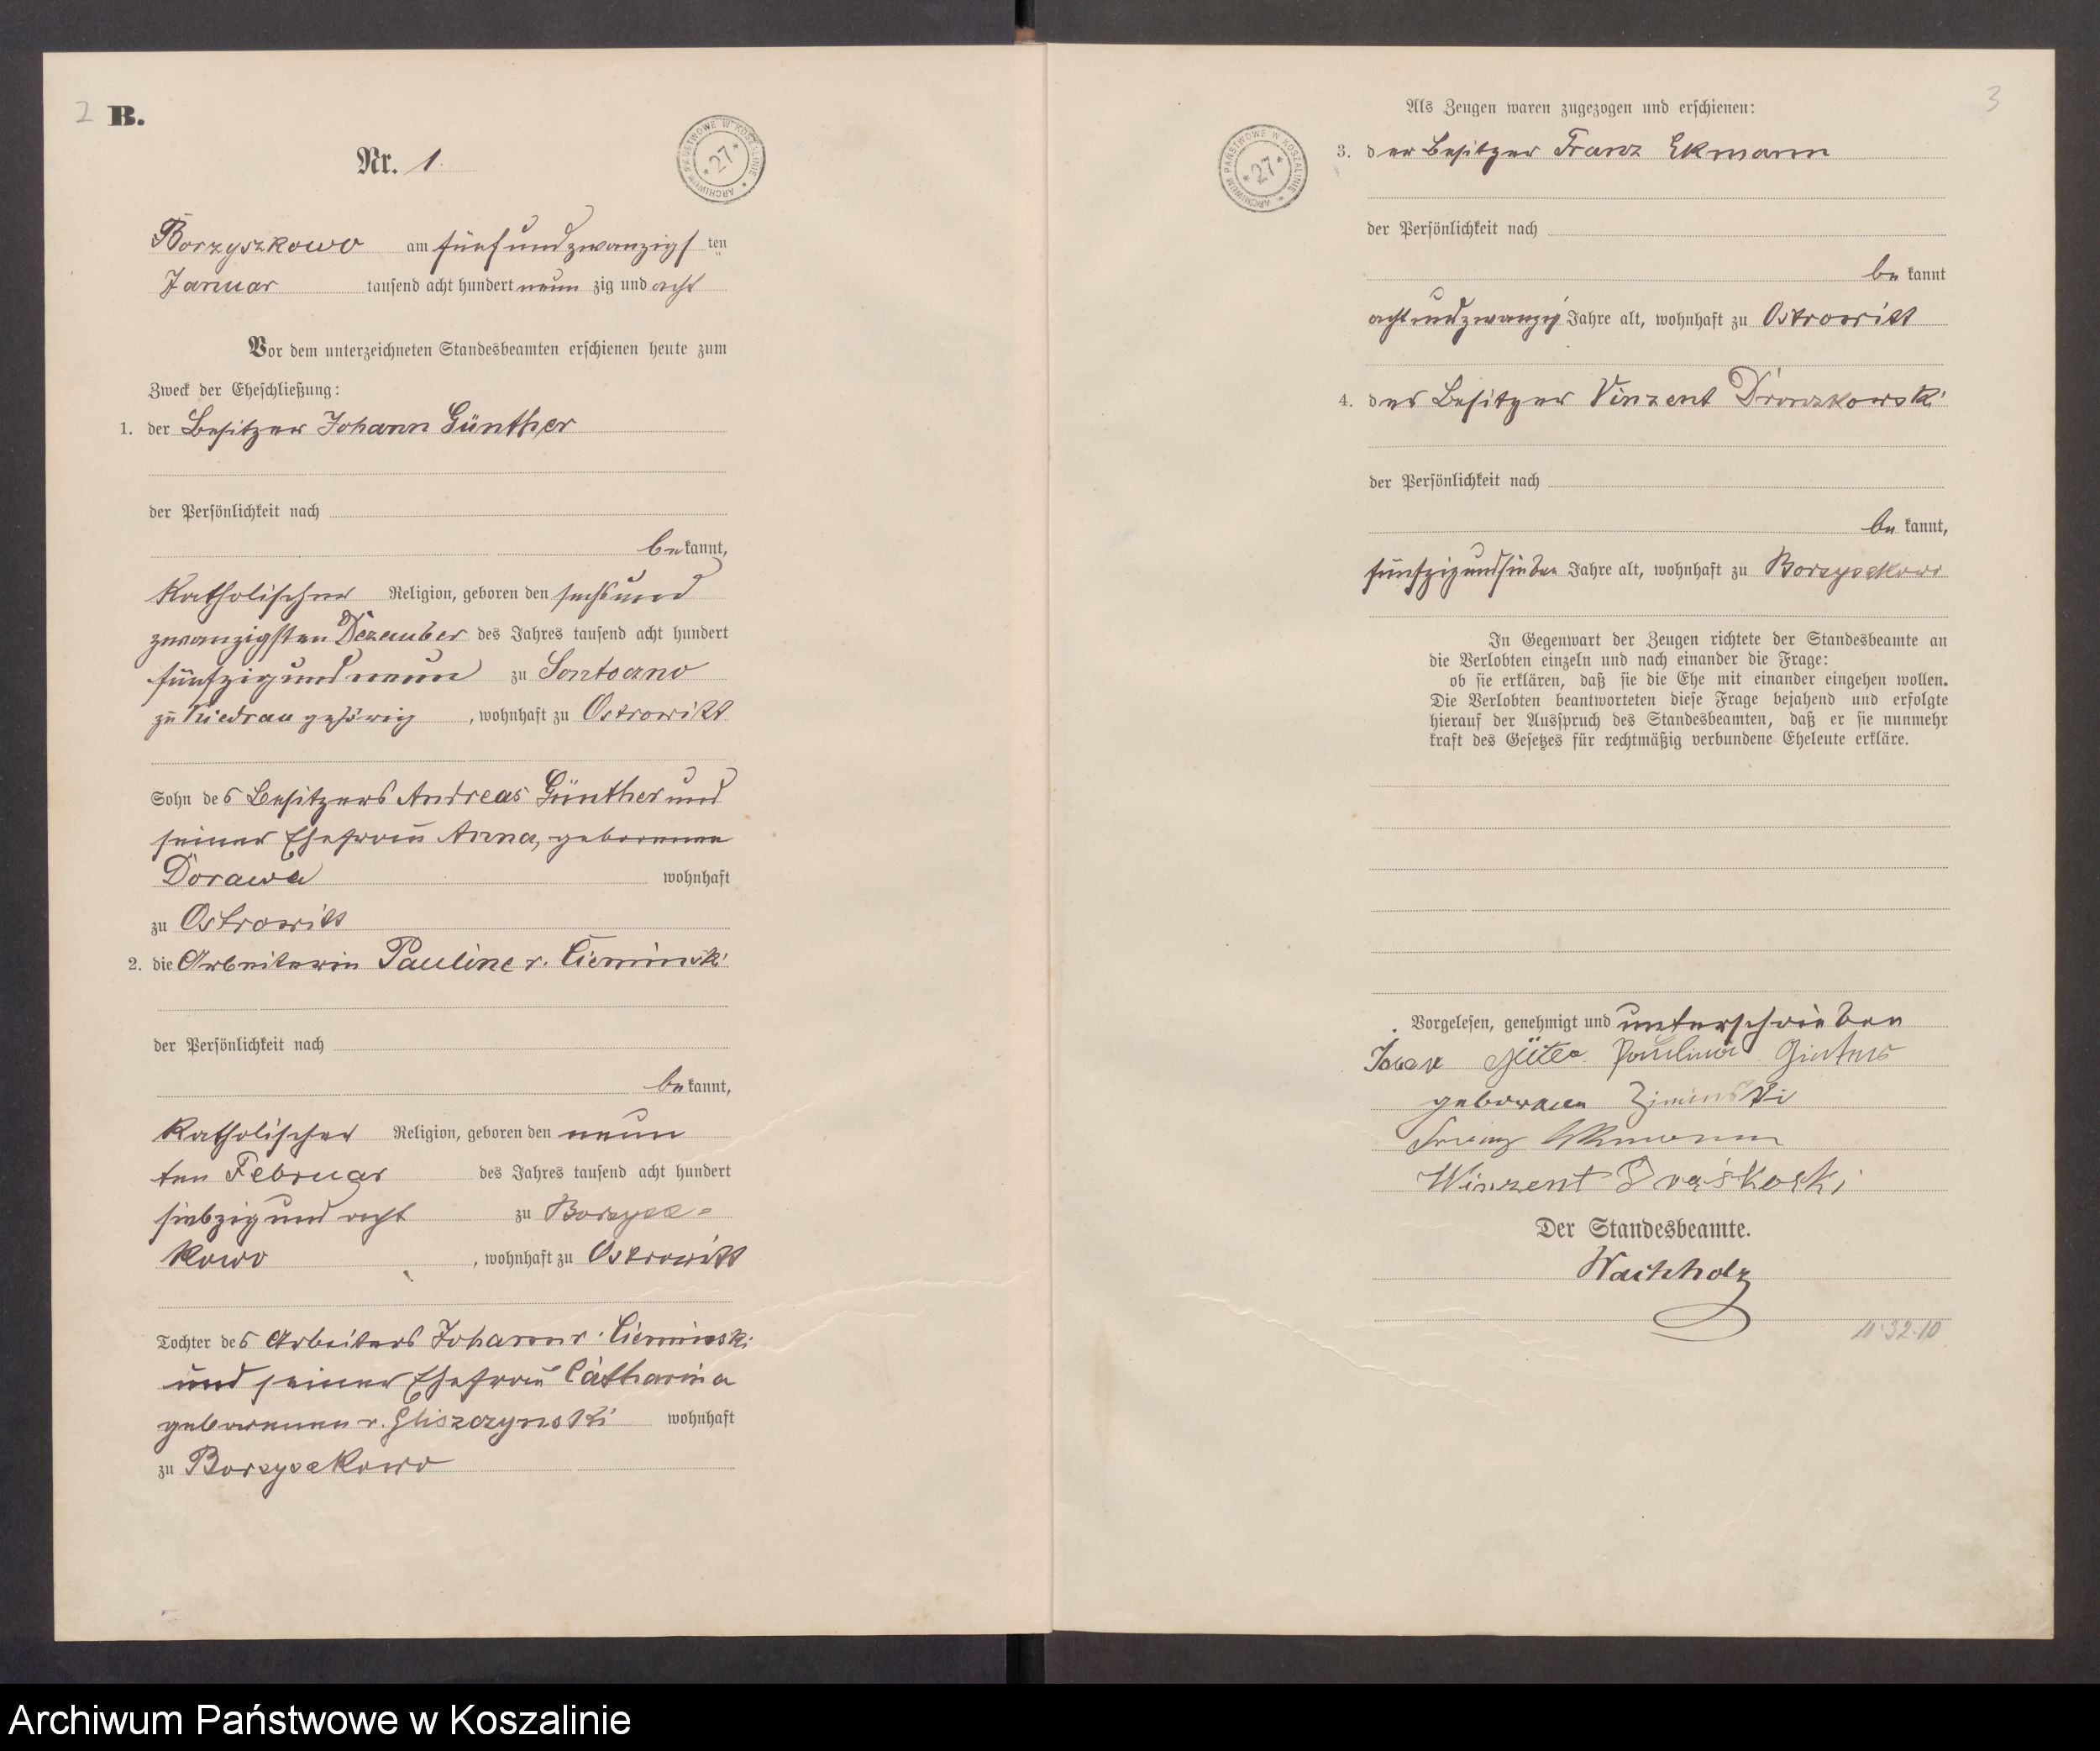 2 B.
Nr. 1.
ARCHIWUM PAŃSTWOWE W KOSZALINIE * 27 *
Borzyszkowo am fünfundzwanzigsten
Januar tausend acht hundert neunzig und acht
Vor dem unterzeichneten Standesbeamten erschienen heute zum
Zweck der Eheschließung:
1. der Besitzer Johann Günther
der Persönlichkeit nach
bekannt,
katholischer Religion, geboren den sechsund
zwanzigsten Dezember des Jahres tausend acht hundert
fünfzig und neun zu
zu gehörig, wohnhaft zu Ostrowitt
Sohn des Besitzers Andreas Günther und
seiner Ehefrau Anna, geborenen
Dorawa wohnhaft
zu Ostrowitt
2. die Arbeiterin Pauline v. Cieminski
der Persönlichkeit nach
bekannt,
katholischer Religion, geboren den neun
ten Februar des Jahres tausend acht hundert
siebzig und acht zu Borzysz-
kowo, wohnhaft zu Ostrowitt
Tochter des Arbeiters Johann v. Cieminski
und seiner Ehefrau Catharina
geborenen v. Gliszczynski wohnhaft
zu Borzyszkowo
3
Als Zeugen waren zugezogen und erschienen:
ARCHIWUM PAŃSTWOWE W KOSZALINIE * 27 *
3. der Besitzer Franz Ekmann
der Persönlichkeit nach
bekannt
achtundzwanzig Jahre alt, wohnhaft zu Ostrowitt
4. der Besitzer Vinzent
der Persönlichkeit nach
bekannt,
fünfzig und sieben Jahre alt, wohnhaft zu Borzyszkowo
In Gegenwart der Zeugen richtete der Standesbeamte an
die Verlobten einzeln und nach einander die Frage:
ob sie erklären, daß sie die Ehe mit einander eingehen wollen.
Die Verlobten beantworteten diese Frage bejahend und erfolgte
hierauf der Ausspruch des Standesbeamten, daß er sie nunmehr
kraft des Gesetzes für rechtmäßig verbundene Eheleute erkläre.
Vorgelesen, genehmigt und unterschrieben
geborene Ziminski
Franz Ekmann
Winzent
Der Standesbeamte.
Wachholz
11·32·10
Archiwum Państwowe w Koszalinie